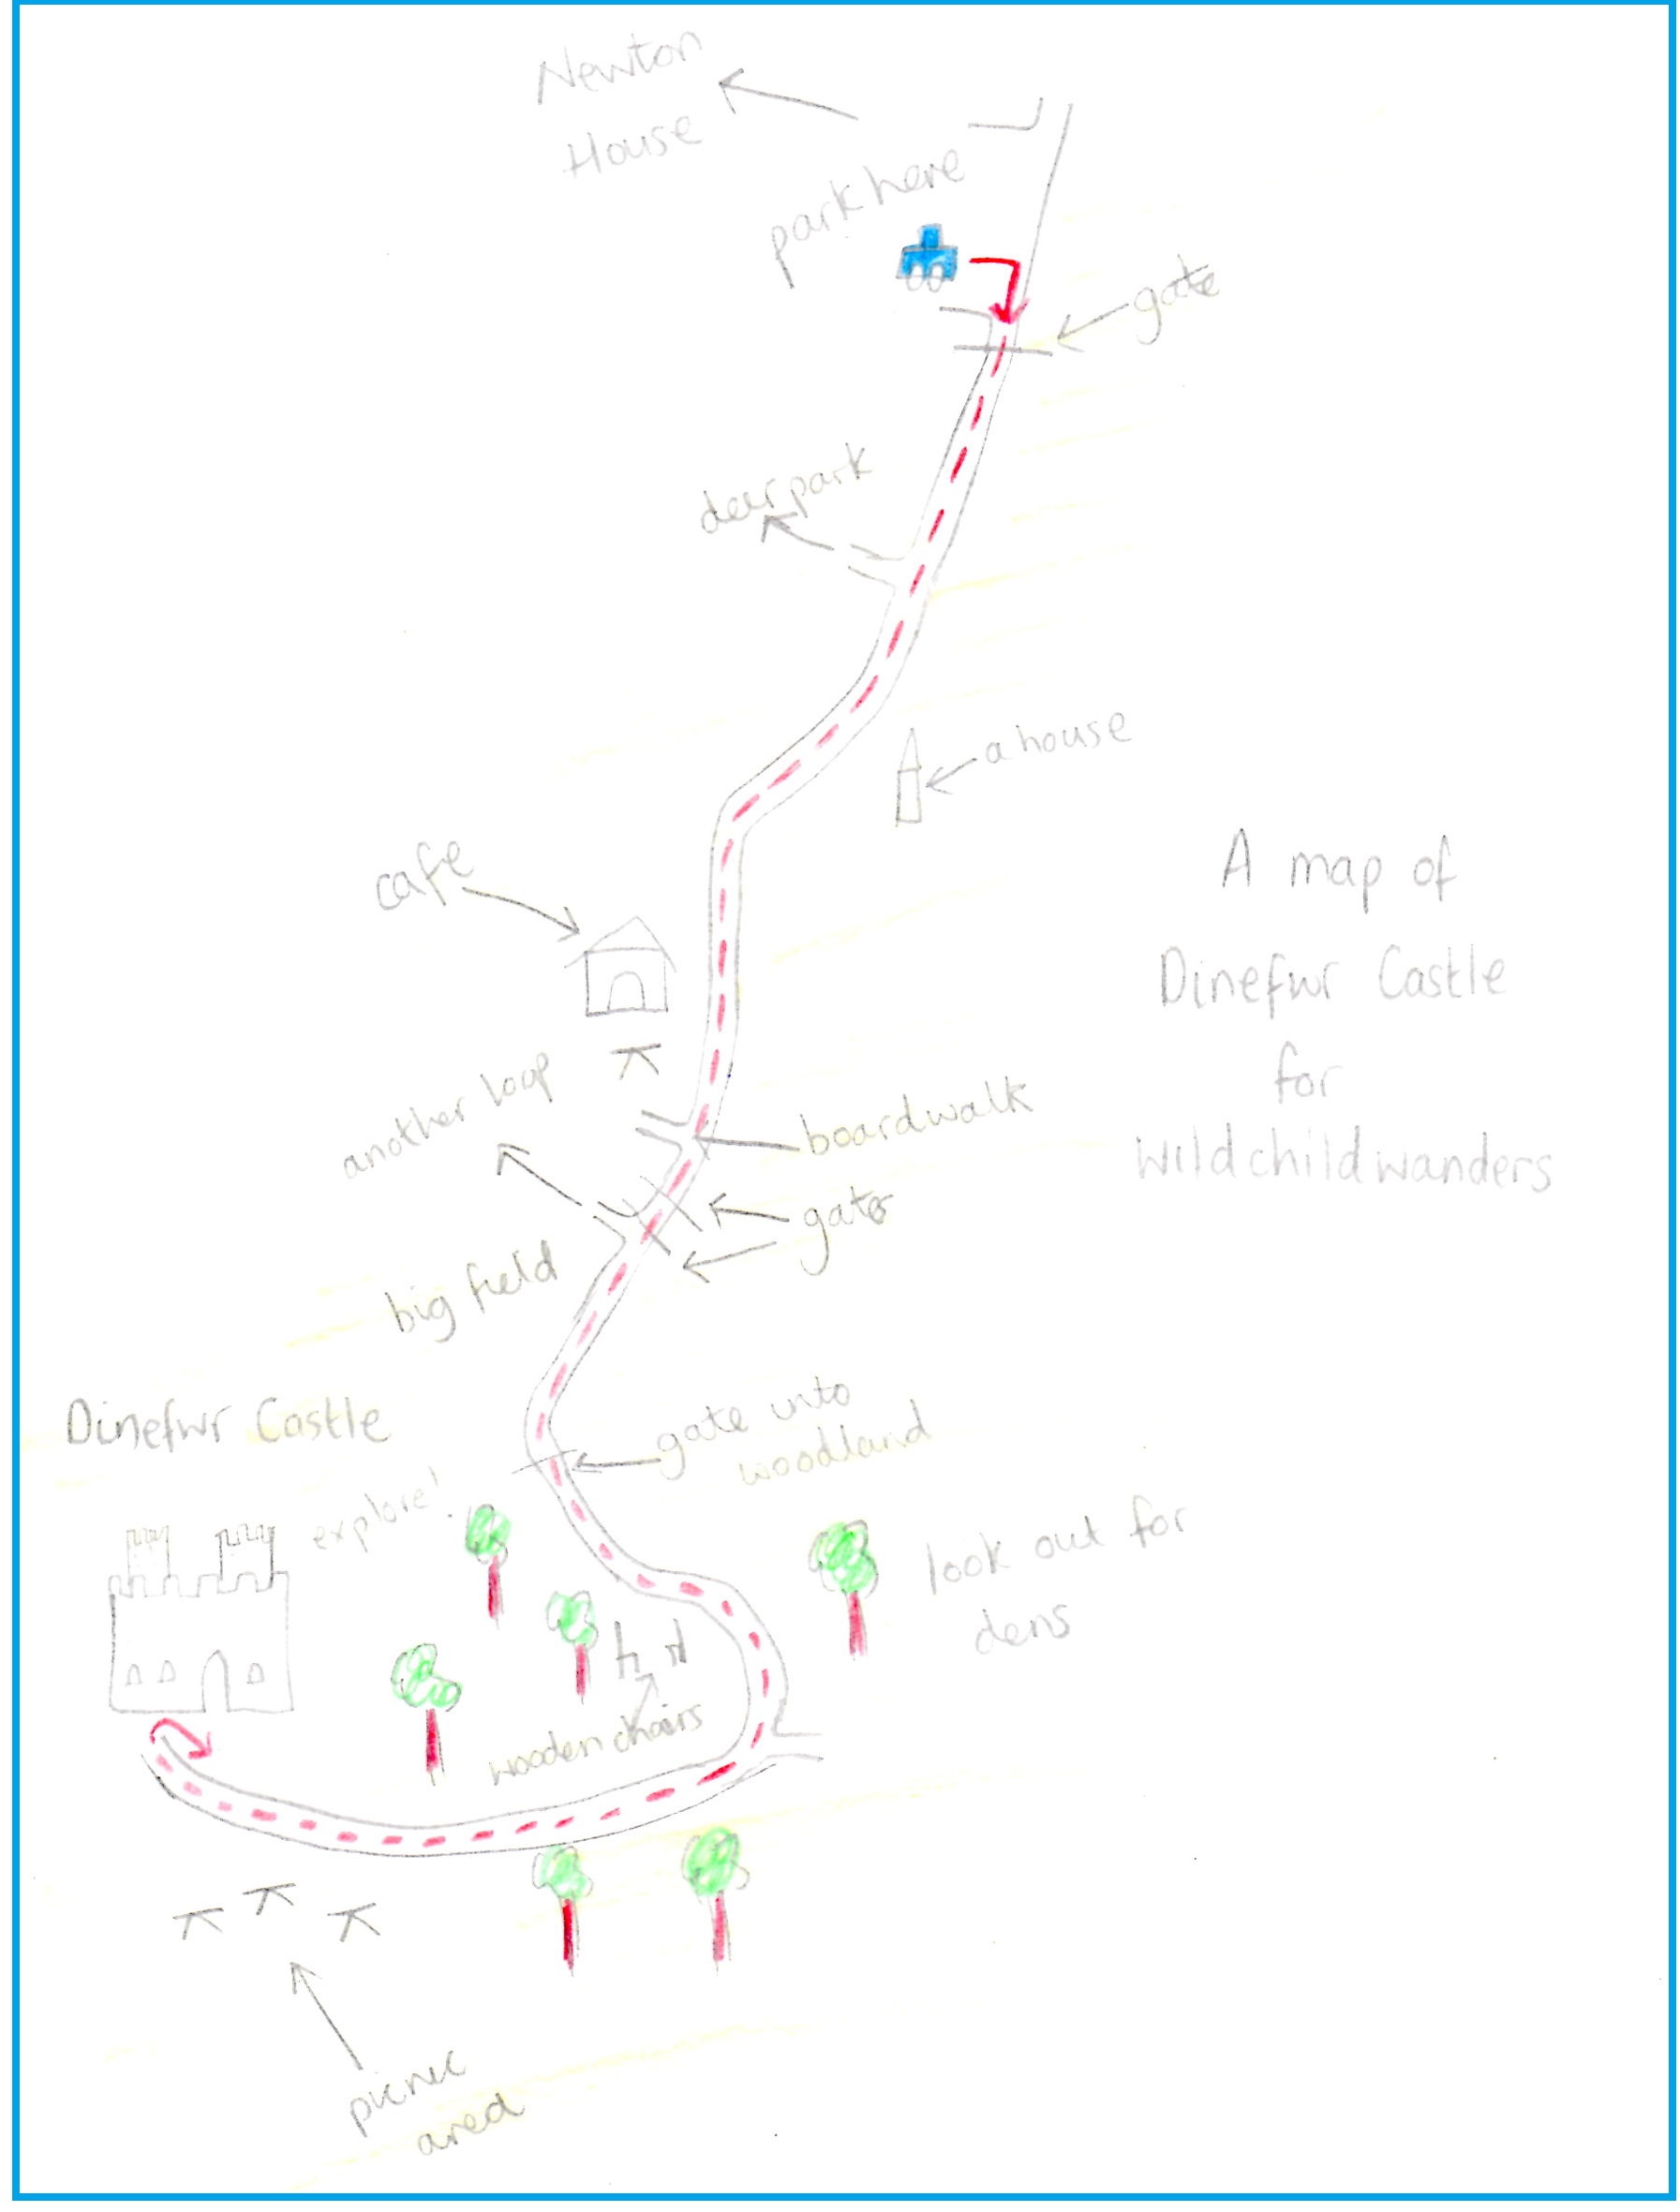 Newton
House
park here
gate
deer park
a house
cafe
A map of
Dinefwr Castle
for
Wildchildwanders
another loop
boardwalk
gate
big field
Dinefwr Castle
gate into
woodland
explore!
look out for
dens
wooden chairs
picnic
area